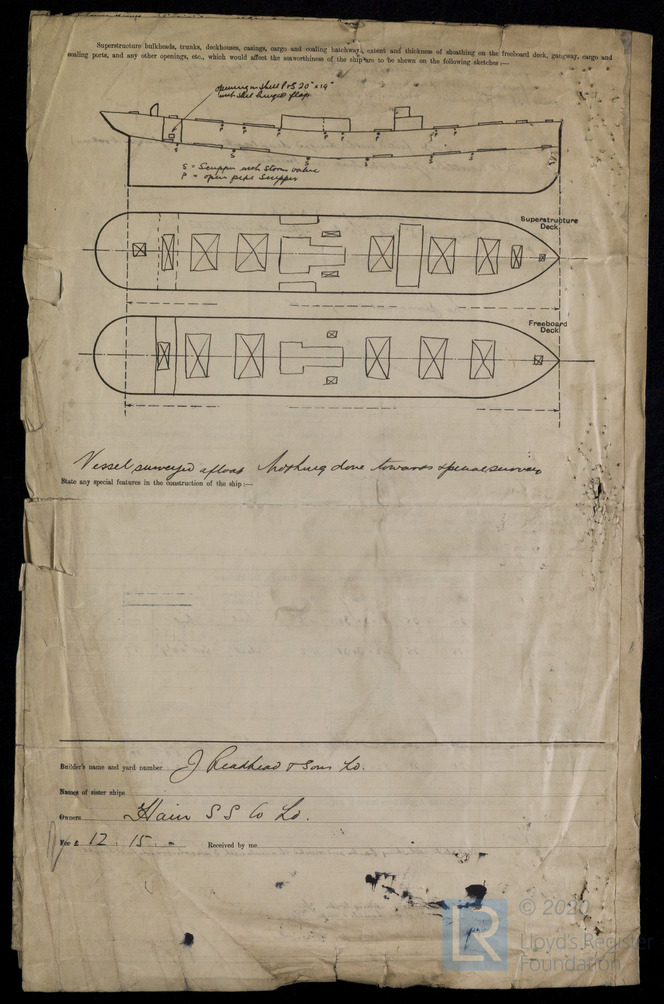 Superstructure bulkheads, trunks, deckhouses, casings, cargo and coaling hatchways, extent and thickness of sheathing on the freeboard deck, gangway, cargo and
coaling ports, and any other openings, etc., which would affect the seaworthiness of the ship are to be shewn on the following sketches:—
opening in shell P & S 20" x 19"
with steel hinged flaps
P P P P P P P P
S S S S S S S
S = Scupper with Storm valve
P = open pipe Scupper
Superstructure
Deck
Freeboard
Deck
Vessel surveyed afloat Nothing done towards special survey
State any special features in the construction of the ship:—
Builder's name and yard number J. Readhead & Sons Ld.
Names of sister ships
Owners Hain S S Co Ld.
Fee £ 12 . 15 . -
Received by me
LR
© 2020
Lloyd's Register
Foundation